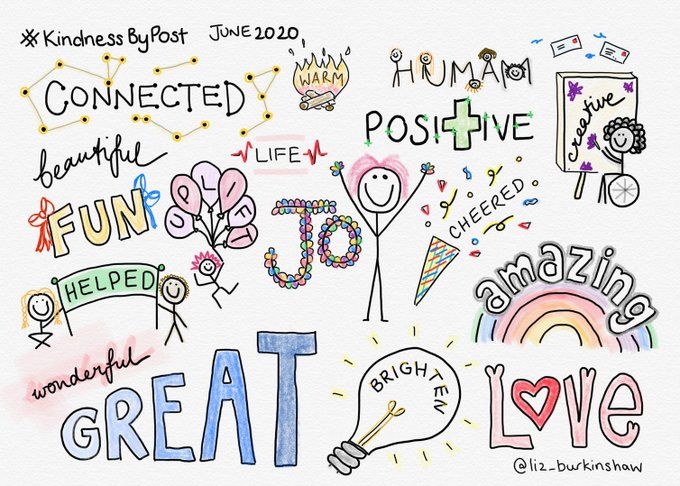 #KindnessByPost JUNE 2020
CONNECTED
WARM
HUMAN
beautiful
LIFE
POSITIVE
creative
FUN
UPLIFT
JOY
CHEERED
HELPED
amazing
wonderful
GREAT
BRIGHTEN
LOVE
@liz_burkinshaw